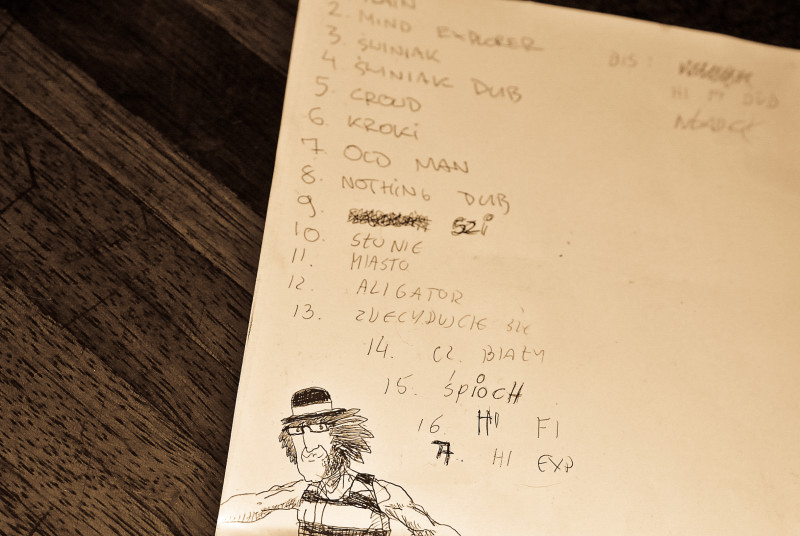 2. MIND EXPLORER
3. ŚWINIAK
4 ŚWINIAK DUB
5 CROUD
6 KROKI
7 OLD MAN
8. NOTHING DUB
9. SZI
10. SŁONIE
11. MIASTO
12. ALIGATOR
13. ZDECYDUJCIE SIĘ
14. CZ. BIAŁY
15. ŚPIOCH
16 HI FI
17. HI EXP
BIS:
HI FI DUB